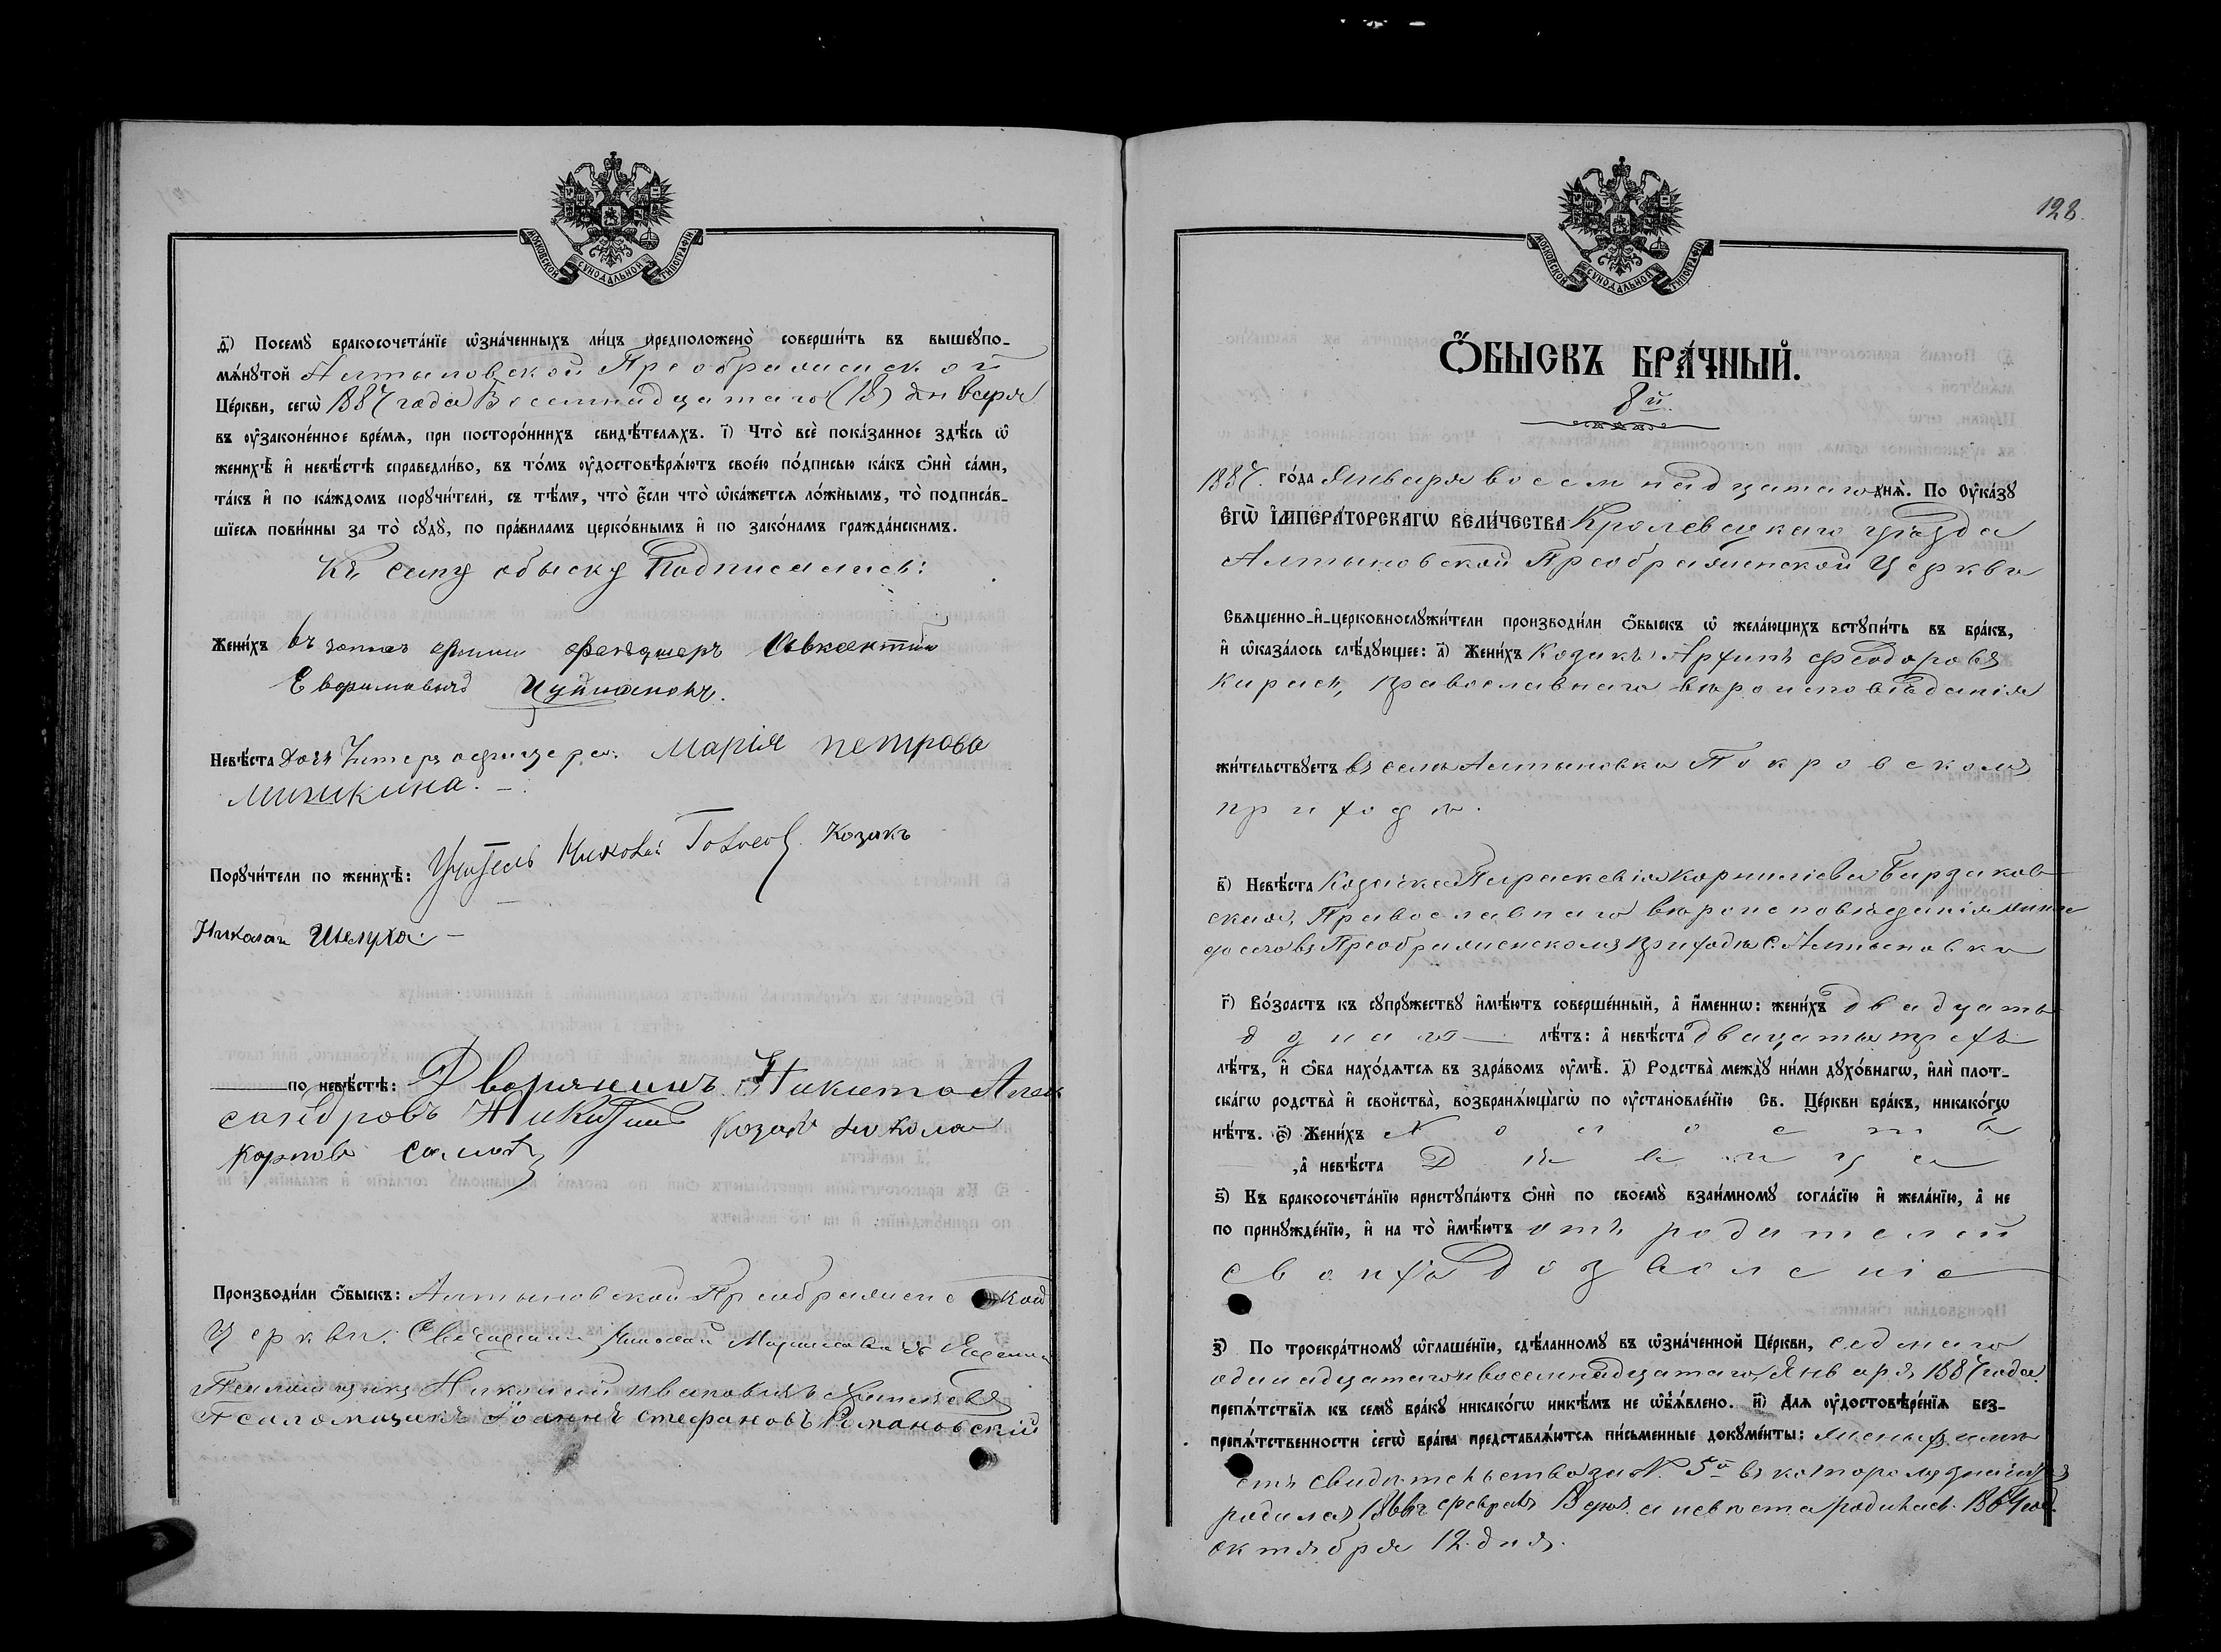 МОСКОВСКОЙ СѴНОДАЛЬНОЙ ТИПОГРАФІИ
д҃) Посемꙋ̀ бракосочета́нїе ѡ҆зна́ченныхъ ли́цъ предположено̀ соверши́ть въ вышеꙋпо-
мѧ́нꙋтой Алтыновской Преображенской
Це́ркви, сегѡ̀ 1887 года Восемнадцатаго (18) Января
въ ᲂу҆зако́ненное вре́мѧ, при посторо́ннихъ свидѣ́телѧхъ. і҃) Что̀ всѐ пока́занное здѣ́сь ѡ҆
женихѣ̀ и҆ невѣ́стѣ справедли́во, въ то́мъ ᲂу҆достовѣрѧ́ютъ свое́ю по́дписью ка́къ ѻ҆нѝ са́ми,
та́къ и҆ по ка́ждомъ порꙋчи́тели, съ тѣ́мъ, что̀ є҆́сли что̀ ѡ҆ка́жетсѧ ло́жнымъ, то̀ подписа́в-
шїесѧ пови́нны за то̀ сꙋдꙋ̀, по пра́виламъ церко́внымъ и҆ по зако́намъ гражда́нскимъ.
Къ сему обыску Подписались:
Жени́хъ въ запас армии фельдшеръ
Невѣ́ста Дочь Унтеръ офицера. Марія петрова
мишкина.
Порꙋчи́тели по женихѣ̀: Учитель Николай Козакъ
Николай Шелуха
по невѣ́стѣ: Дворянинъ Никита Алек
сандровъ Никитинъ Козакъ Никола
Карповъ
Производи́ли ѻ҆́быскъ: Алтыновской Преображенской
Церкви: Священник Николай
Николай Ивановичъ
Псаломщикъ Іоаннъ Стефановъ Романовскій
128.
МОСКОВСКОЙ СѴНОДАЛЬНОЙ ТИПОГРАФІИ
Ѻ҆́БЫСКЪ БРА́ЧНЫЙ.
8й
1887. го́да Января восемнадцатаго днѧ̀. По ᲂу҆ка́зꙋ
Є҆ГѠ̀ И҆МПЕРА́ТОРСКАГѠ ВЕЛИ́ЧЕСТВА Кролевецкаго уѣзда
Алтыновской Преображенской Церкви
Свѧще́нно-и҆-церковнослꙋжи́тели производи́ли ѻ҆́быскъ ѡ҆ жела́ющихъ встꙋпи́ть въ бра́къ,
и҆ ѡ҆каза́лось слѣ́дꙋющее: а҃) Жени́хъ Козакъ Архипъ Феодоровъ
Карась, православнаго вѣроисповѣданія
жи́тельствꙋетъ въ селѣ Алтыновки Покровскомъ
приходѣ.
в҃) Невѣ́ста Козачка Параскевія Корниліева Бардаков
ская, Православнаго вѣроисповѣданія жила
до сего въ Преображенскомъ приходѣ С. Алтыновки
г҃) Во́зрастъ къ сꙋпрꙋ́жествꙋ и҆мѣ́ютъ соверше́нный, а҆ и҆́менно: жени́хъ двадцать
одного лѣ́тъ: а҆ невѣ́ста двацать трехъ
лѣ́тъ, и҆ ѻ҆́ба нахо́дѧтсѧ въ здра́вомъ ᲂу҆мѣ̀. д҃) Родства̀ междꙋ̀ ни́ми дꙋхо́внагѡ, и҆лѝ плот-
ска́гѡ родства̀ и҆ свойства̀, возбранѧ́ющагѡ по ᲂу҆становле́нїю Св. Це́ркви бра́къ, никако́гѡ
нѣ́тъ. є҃) Жени́хъ Холостъ
,а҆ невѣ́ста Дѣвица
ѕ҃) Къ бракосочета́нїю пристꙋпа́ютъ ѻ҆нѝ по своемꙋ̀ взаи́мномꙋ согла́сїю и҆ жела́нїю, а҆ не
по принꙋжде́нїю, и҆ на то̀ и҆мѣ́ютъ отъ родителей
своихъ Дозволеніе
з҃) По троекра́тномꙋ ѡ҆глаше́нїю, сдѣ́ланномꙋ въ ѡ҆зна́ченной Це́ркви, седмаго
одинадцатаго и восемнадцатаго Января 1887 года
препѧ́тствїѧ къ семꙋ̀ бра́кꙋ никако́гѡ никѣ́мъ не ѡ҆б̾ѧ́влено. и҃) Для ᲂу҆достовѣре́нїѧ без-
препѧ́тственности сегѡ̀ бра́ка представлѧ́ютсѧ пи́сьменные докꙋме́нты: женихъ имѣ
етъ свидѣтельство за N. 5й въ которомъ значится
родился 1866 г. февраля а невѣста родилась 1864 год.
октября 12. дня.